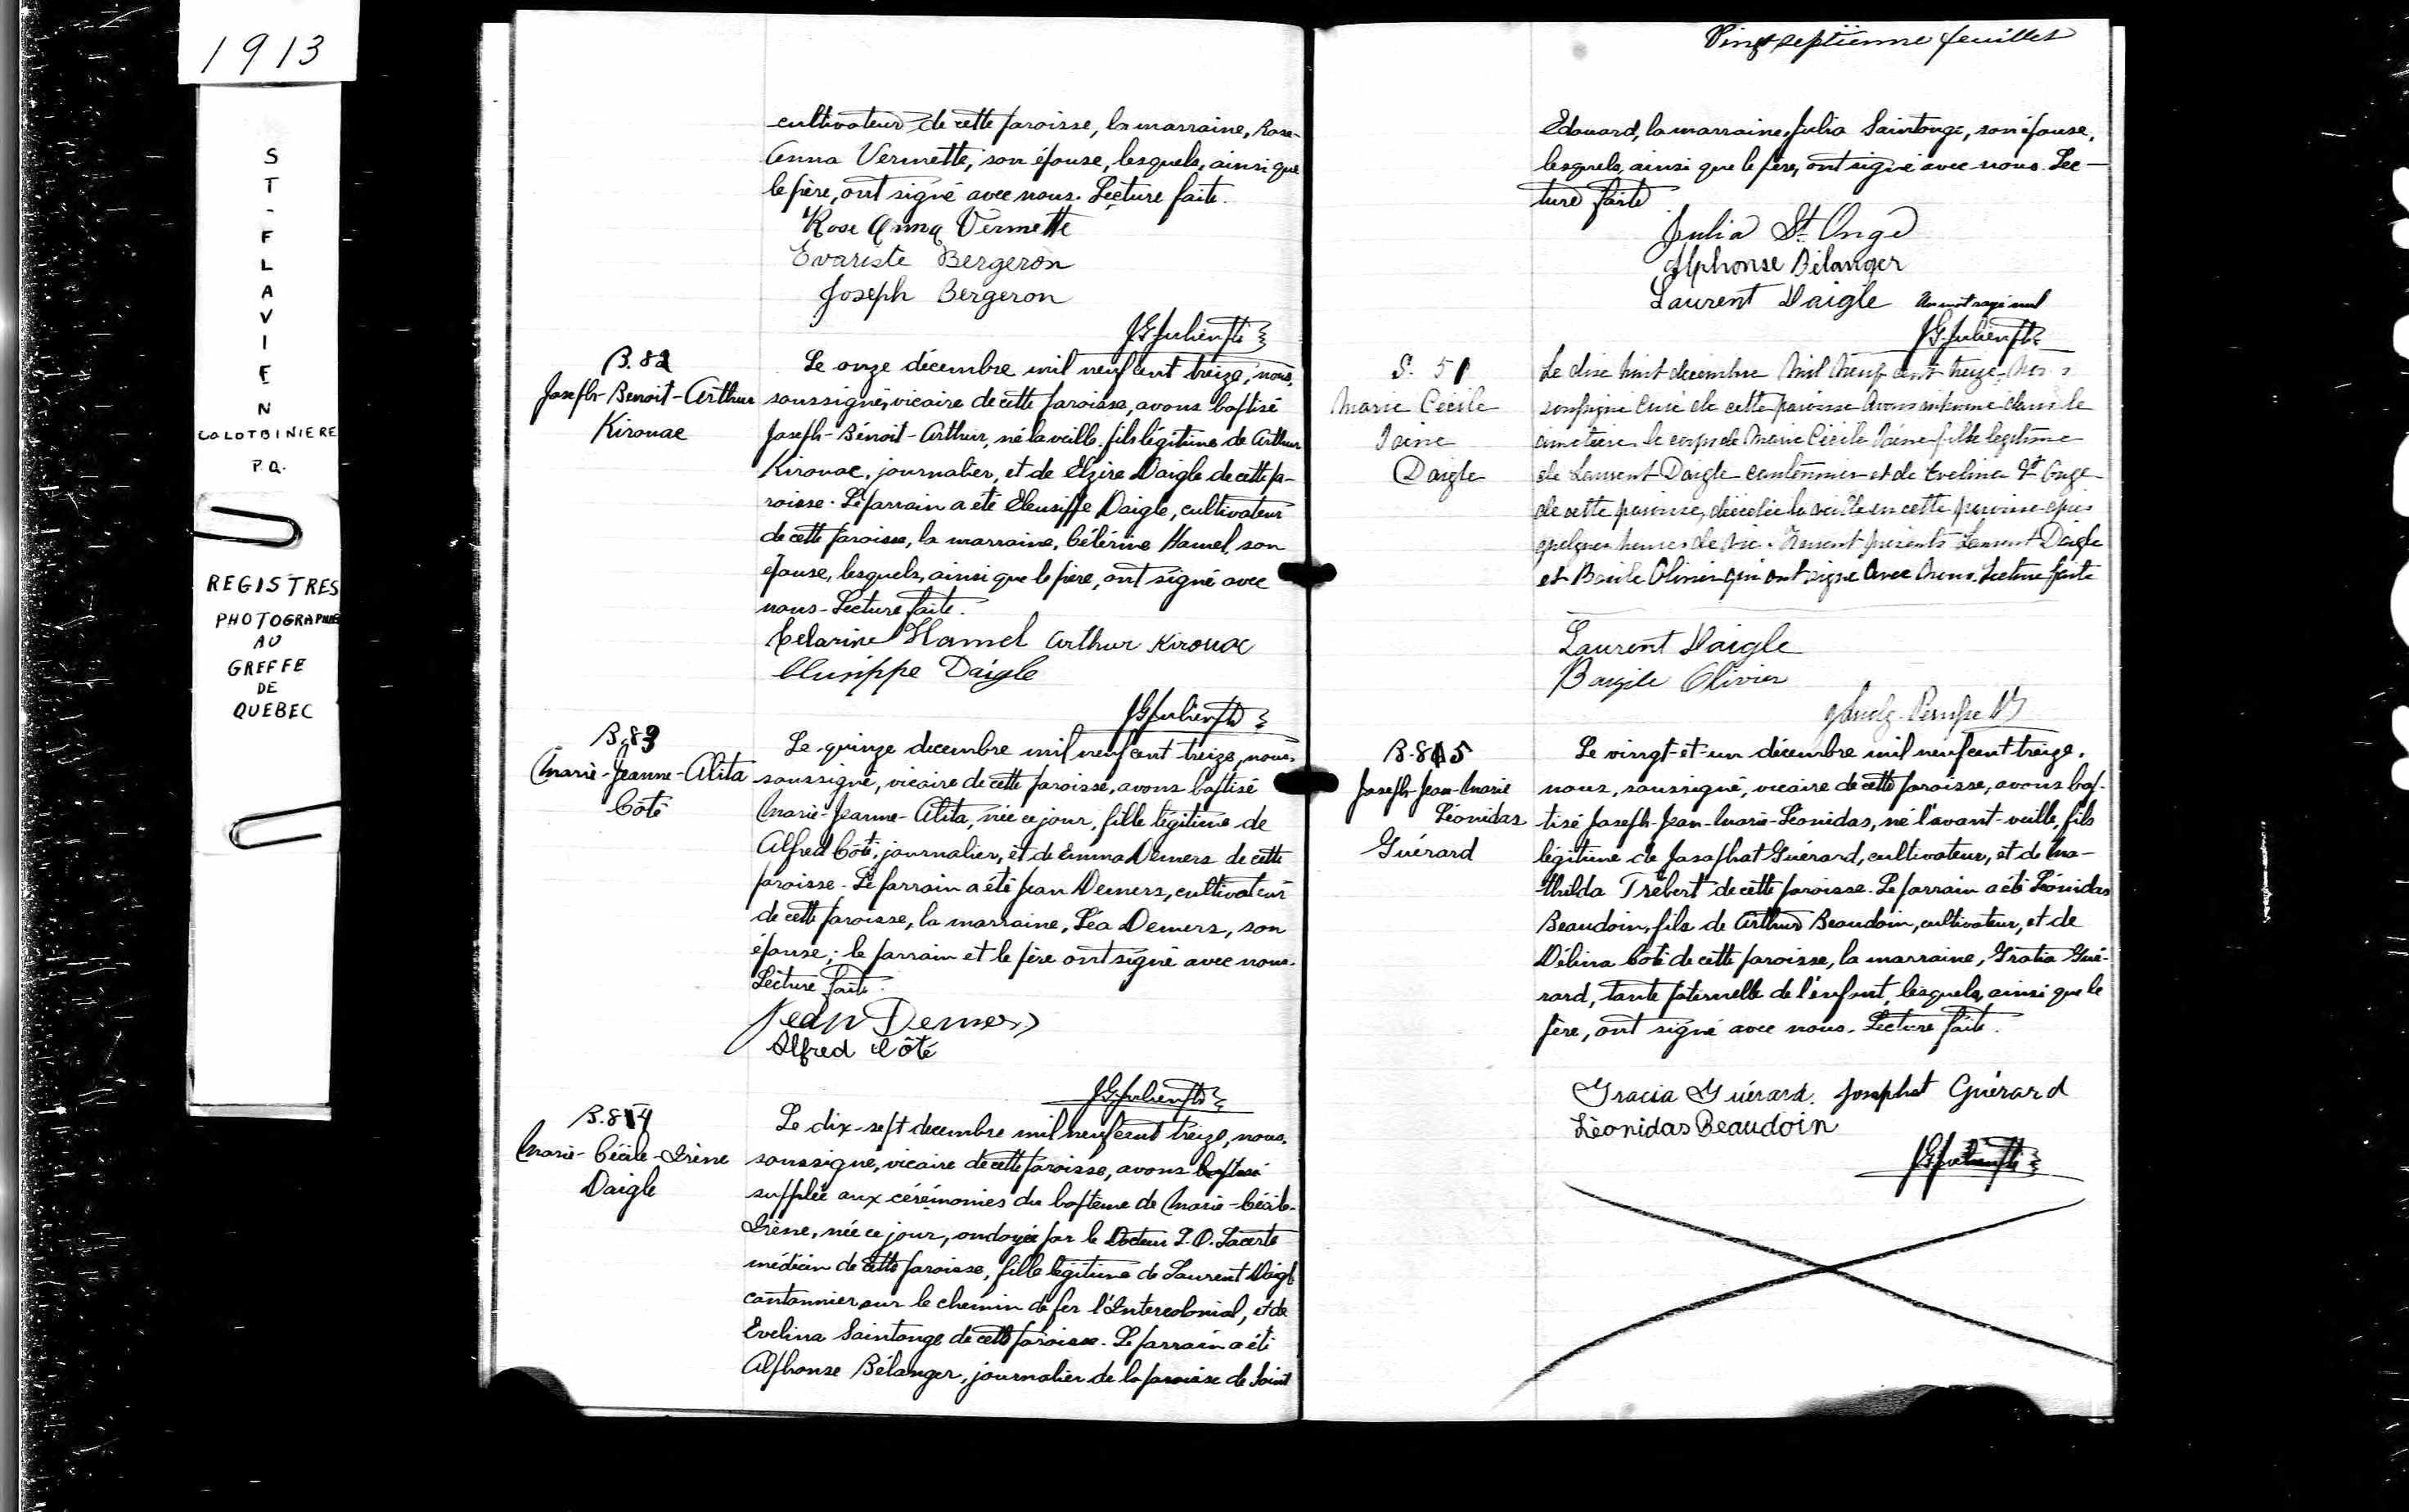 1913
ST-FLAVIEN
COLOTBINIERE
P.Q.
REGISTRES
PHOTOGRAPHIÉS
AU
GREFFE
DE
QUEBEC
cultivateur de cette paroisse, la marraine, Rose-
Anna Vermette, son épouse, lesquels, ainsi que
le père, ont signé avec nous. Lecture faite.
Rose Anna Vermette
Evariste Bergeron
Joseph Bergeron
JGJulien Ptr
B. 82
Joseph-Benoit-Arthur
Kirouac
Le onze décembre mil neuf cent treize, nous,
soussigné, vicaire de cette paroisse, avons baptisé
Joseph-Bénoit-Arthur, né la veille, fils légitime de Arthur
Kirouac, journalier, et de Elzire Daigle de cette pa-
roisse. Le parrain a été Eleusippe Daigle, cultivateur
de cette paroisse, la marraine, Célérine Hamel, son
épouse, lesquels, ainsi que le père, ont signé avec
nous. Lecture faite.
Celarine Hamel Arthur Kirouac
Elusippe Daigle
JGJulien Ptr
B. 83
Marie-Jeanne-Alita
Côté
Le quinze decembre mil neuf cent treize, nous,
soussigné, vicaire de cette paroisse, avons baptisé
Marie-Jeanne-Alita, née ce jour, fille légitime de
Alfred Côté, journalier, et de Emma Demers de cette
paroisse. Le parrain a été Jean Demers, cultivateur
de cette paroisse, la marraine, Léa Demers, son
épouse; le parrain et le père ont signé avec nous.
Lecture faite.
Jean Demers
Alfred Côté
JGJulien Ptr
B. 84
Marie-Cécile-Irène
Daigle
Le dix-sept decembre mil neuf cent treize, nous,
soussigné, vicaire de cette paroisse, avons baptisé
supplée aux cérémonies du baptême de Marie-Cécile-
Irène, née ce jour, ondoyée par le Docteur L. O. Lacerte
médecin de cette paroisse, fille légitime de Laurent Daigle
cantonnier sur le chemin de fer l'Intercolonial, et de
Evelina Saintonge de cette paroisse. Le parrain a été
Alphonse Bélanger, journalier de la paroisse de Saint
Vingt septième feuillet
Edouard, la marraine, Julia Saintonge, son épouse,
lesquels, ainsi que le père, ont signé avec nous. Lec-
ture faite
Julia St Onge
Alphonse Bélanger
Laurent Daigle Un mot rayé nul
JGJulien Ptr
S. 51
Marie Cécile
Irène
Daigle
Le dix huit decembre mil neuf cent treize, nous
soussigné curé de cette paroisse avons inhumé dans le
cimetière le corps de Marie Cécile Irène fille légitime
de Laurent Daigle cantonnier et de Evelina St Onge
de cette paroisse, décédée la veille en cette paroisse âgée
quelques heures de vie. Furent présents Laurent Daigle
et Basile Olivier qui ont signé avec nous. Lecture faite
Laurent Daigle
Bazile Olivier
B. 85
Joseph-Jean-Marie
Léonidas
Guérard
Le vingt-et-un décembre mil neuf cent treize,
nous, soussigné, vicaire de cette paroisse, avons bap-
tisé Joseph-Jean-Marie-Léonidas, né l'avant-veille, fils
légitime de Josaphat Guérard, cultivateur, et de Ma-
thilda Trébert de cette paroisse. Le parrain a été Léonidas
Beaudoin, fils de Arthur Beaudoin, cultivateur, et de
Délina Côté de cette paroisse, la marraine, Gratia Gué-
rard, tante paternelle de l'enfant, lesquels, ainsi que le
père, ont signé avec nous. Lecture faite.
Gracia Guérard. Josaphat Guérard
Léonidas Beaudoin
JGJulien Ptr